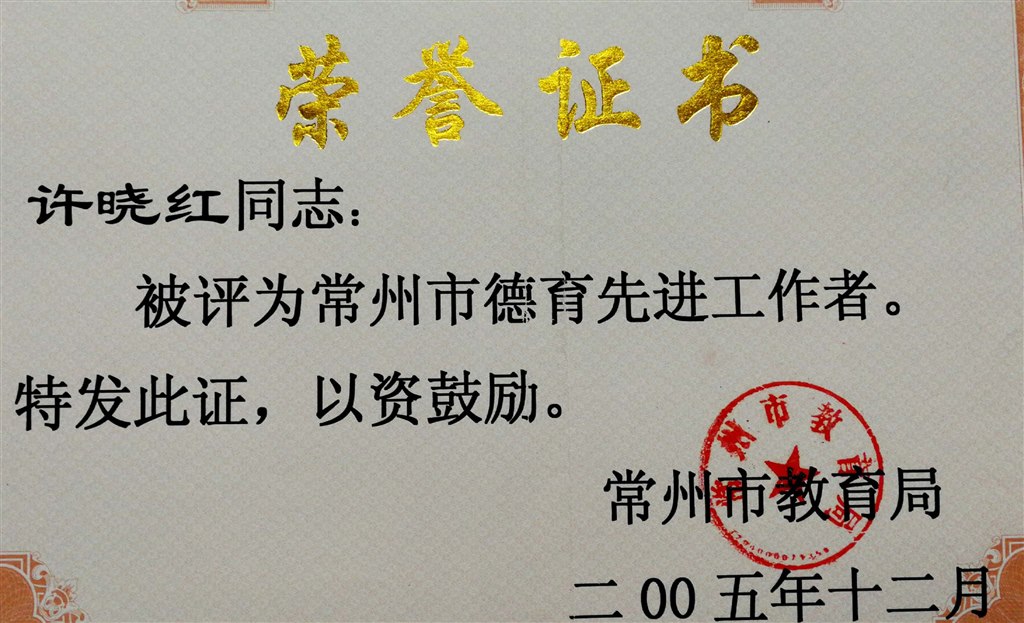 荣誉证书
许晓红同志：
被评为常州市德育先进工作者。
特发此证，以资鼓励。
常州市教育局
常州市教育局
二00五年十二月